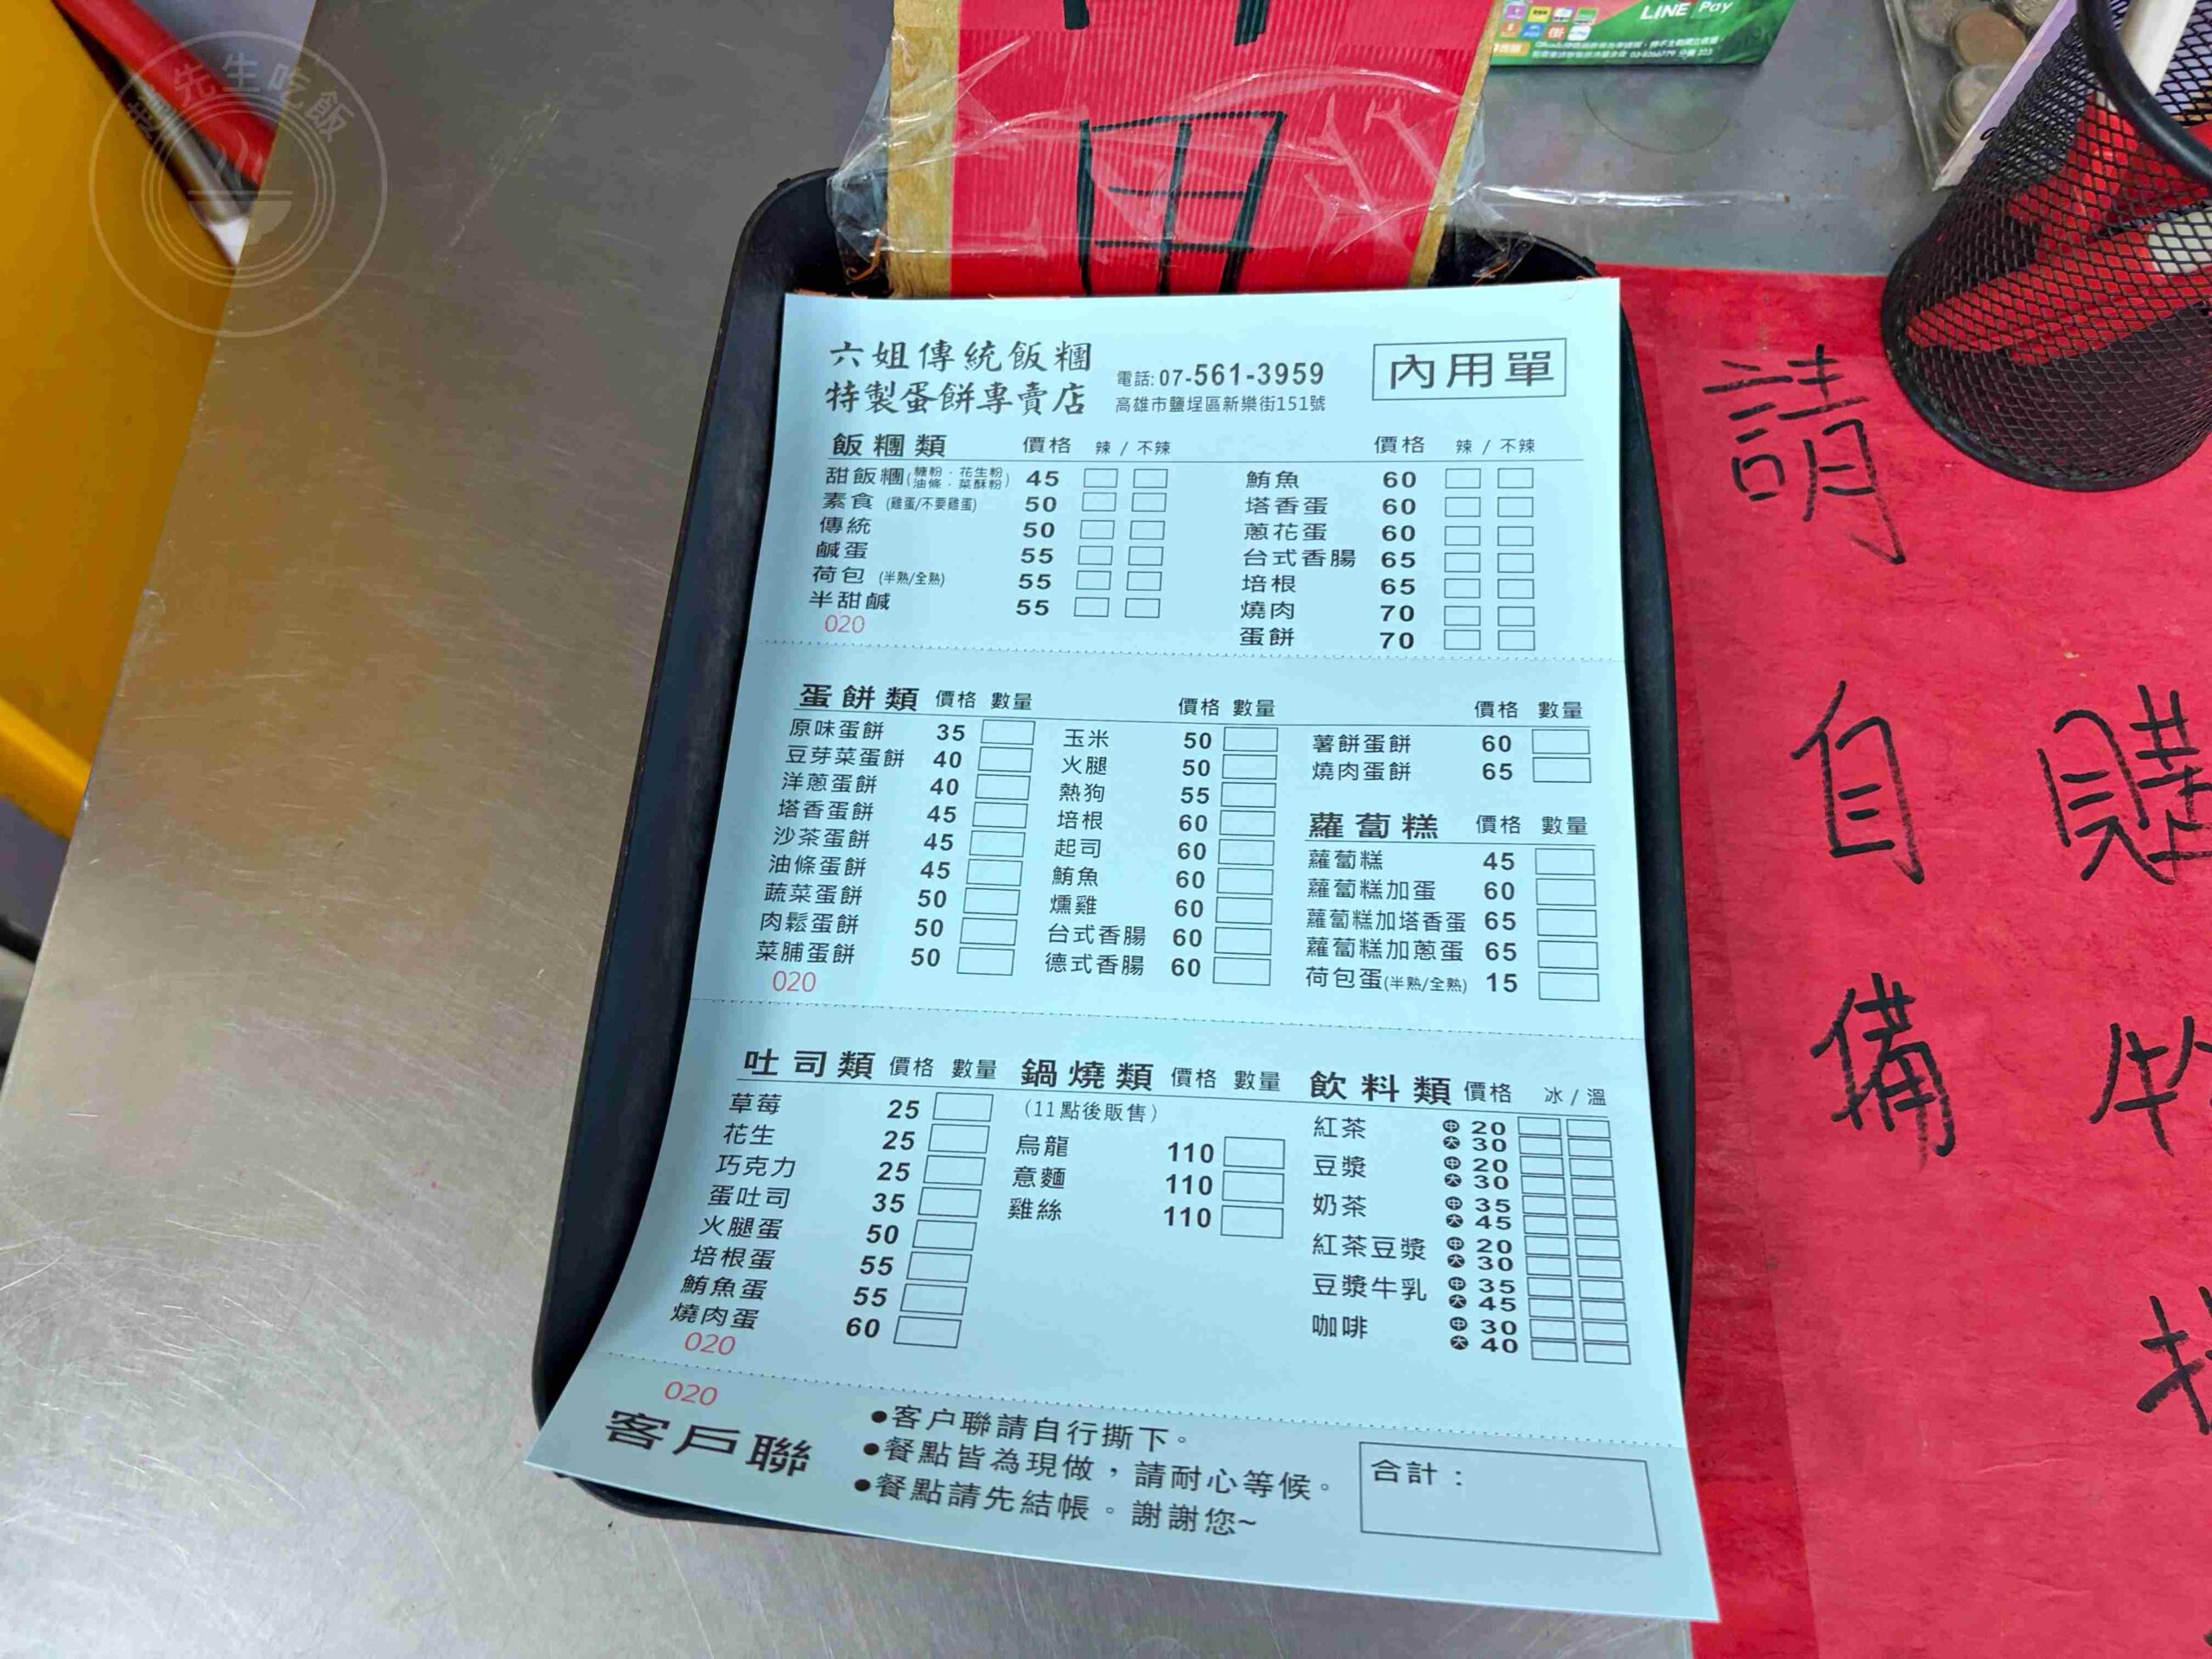 先生吃飯
LINE Pay
田
請
自
備
購
六姐傳統飯糰
特製蛋餅專賣店
電話: 07-561-3959
高雄市鹽埕區新樂街151號
內用單
飯糰類 價格 辣 / 不辣
甜飯糰(糖粉．花生粉 油條．菜酥粉) 45
素食 (雞蛋/不要雞蛋) 50
傳統 50
鹹蛋 55
荷包 (半熟/全熟) 55
半甜鹹 55
020
價格 辣 / 不辣
鮪魚 60
塔香蛋 60
蔥花蛋 60
台式香腸 65
培根 65
燒肉 70
蛋餅 70
蛋餅類 價格 數量
原味蛋餅 35
豆芽菜蛋餅 40
洋蔥蛋餅 40
塔香蛋餅 45
沙茶蛋餅 45
油條蛋餅 45
蔬菜蛋餅 50
肉鬆蛋餅 50
菜脯蛋餅 50
020
價格 數量
玉米 50
火腿 50
熱狗 55
培根 60
起司 60
鮪魚 60
燻雞 60
台式香腸 60
德式香腸 60
價格 數量
薯餅蛋餅 60
燒肉蛋餅 65
蘿蔔糕 價格 數量
蘿蔔糕 45
蘿蔔糕加蛋 60
蘿蔔糕加塔香蛋 65
蘿蔔糕加蔥蛋 65
荷包蛋(半熟/全熟) 15
吐司類 價格 數量
草莓 25
花生 25
巧克力 25
蛋吐司 35
火腿蛋 50
培根蛋 55
鮪魚蛋 55
燒肉蛋 60
020
鍋燒類 價格 數量
(11點後販售)
烏龍 110
意麵 110
雞絲 110
飲料類 價格 冰 / 溫
紅茶 中 20
大 30
豆漿 中 20
大 30
奶茶 中 35
大 45
紅茶豆漿 中 20
大 30
豆漿牛乳 中 35
大 45
咖啡 中 30
大 40
020
客戶聯
●客戶聯請自行撕下。
●餐點皆為現做，請耐心等候。
●餐點請先結帳。謝謝您~
合計：